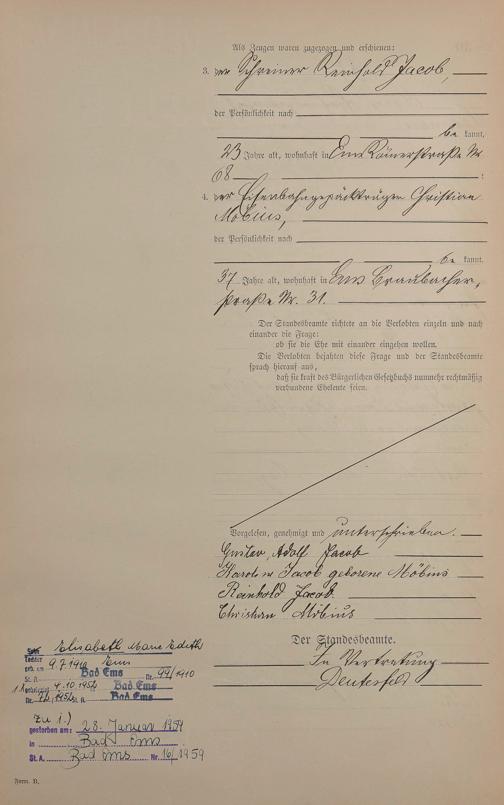 Als Zeugen waren zugezogen und erschienen:
3. der Schreiner Reinhold Jacob,
der Persönlichkeit nach
be kannt,
23 Jahre alt, wohnhaft in Ems Römerstraße Nr.
68 ;
4. der Eisenbahngepäckträger Christian
Möbius,
der Persönlichkeit nach
be kannt,
37 Jahre alt, wohnhaft in Ems Braubacher,
straße Nr. 31.
Der Standesbeamte richtete an die Verlobten einzeln und nach
einander die Frage:
ob sie die Ehe mit einander eingehen wollen.
Die Verlobten bejahten diese Frage und der Standesbeamte
sprach hierauf aus,
daß sie kraft des Bürgerlichen Gesetzbuchs nunmehr rechtmäßig
verbundene Eheleute seien.
Vorgelesen, genehmigt und unterschrieben.
Gustav Adolf Jacob
Jacob geborene Möbius
Reinhold Jacob
Christian Möbius
Der Standesbeamte.
In Vertretung
Elisabeth Marie Edith
Tochter
geb. am 9.7.1910 Ems
St. A. Bad Ems Nr. 99/1910
4.10.1952 Bad Ems
Nr. St. A. Bad Ems
Zu 1.)
gestorben am: 28. Januar 1959
in Bad Ems
St. A. Bad Ems Nr. 16/1959
Form. B.